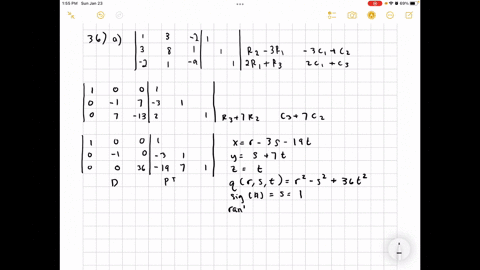 1:56 PM Sun Jan 23
89%
36) a) | 1 3 -2 | 1
| 3 8 1 | 1 R2 - 3R1 -3C1 + C2
| -2 1 -9 | 1 2R1 + R3 2C1 + C3
| 1 0 0 | 1
| 0 -1 7 | -3 1
| 0 7 -13 | 2 1 | R3 + 7R2 C3 + 7C2
| 1 0 0 | 1
| 0 -1 0 | -3 1
| 0 0 36 | -19 7 1
D PT
x = r - 3s - 19t
y = s + 7t
z = t
q(r, s, t) = r² - s² + 36t²
sig (A) = s = 1
ran